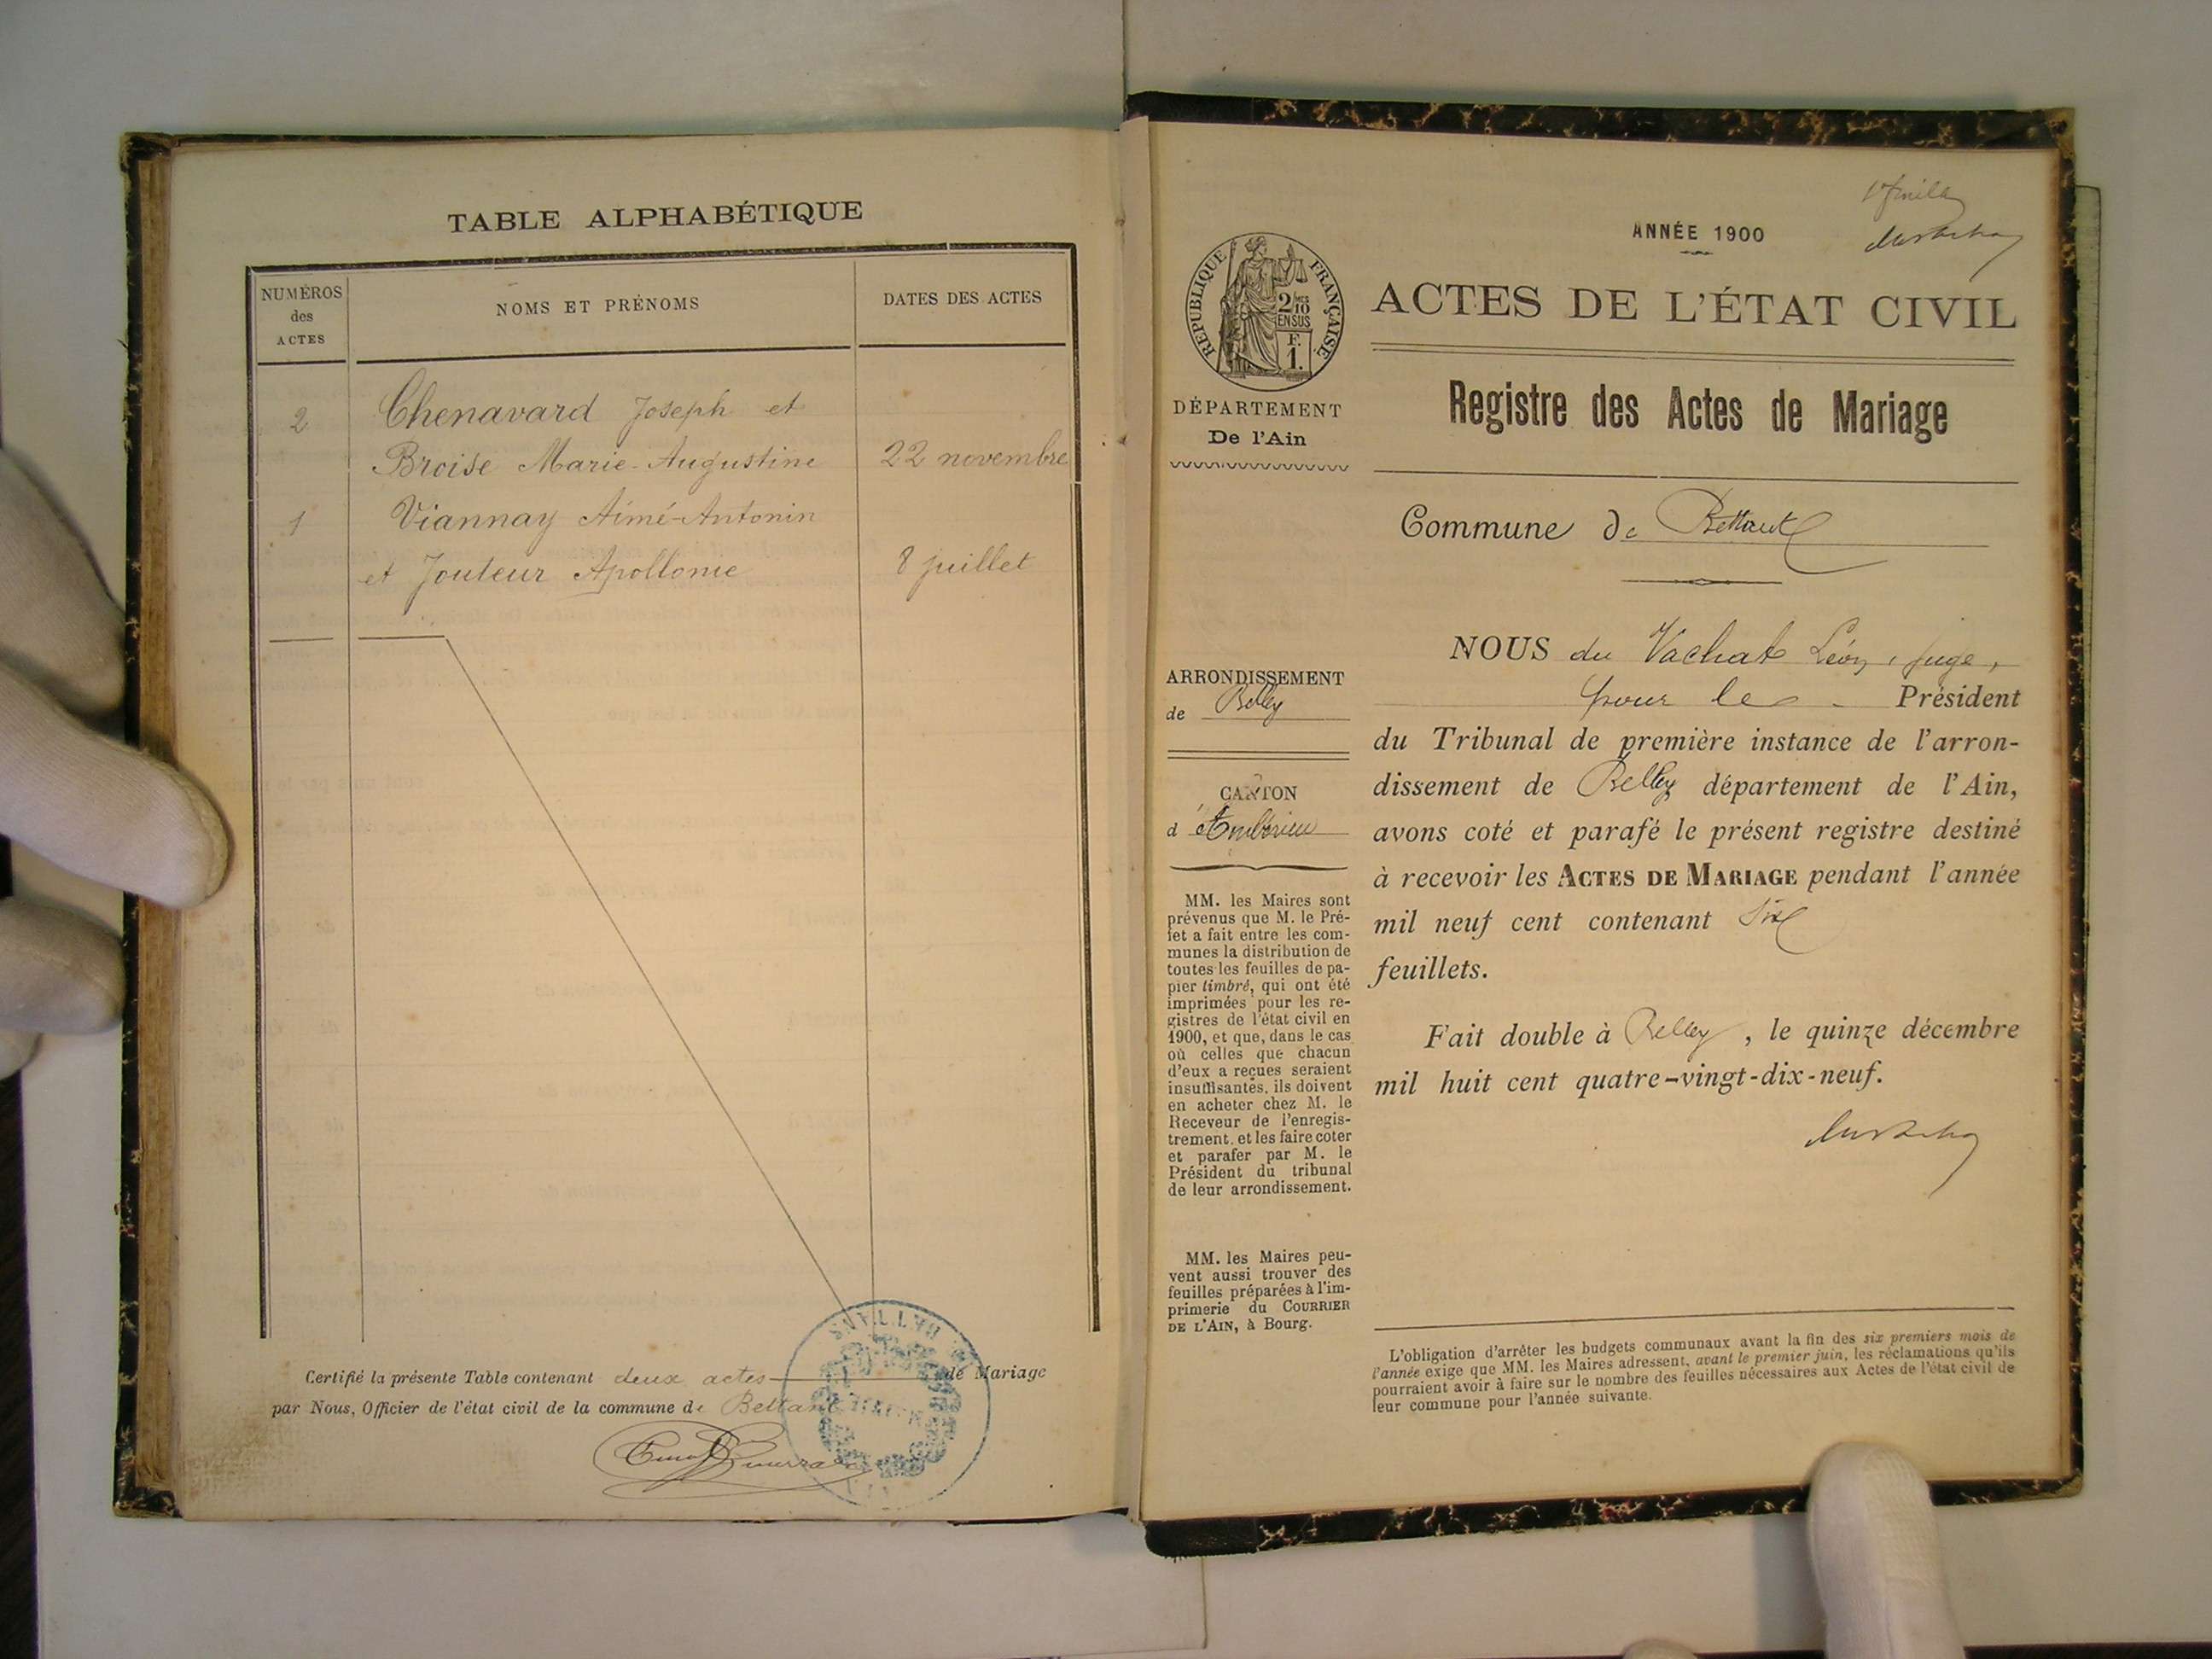 TABLE ALPHABÉTIQUE
NUMÉROS
des
ACTES
NOMS ET PRÉNOMS
DATES DES ACTES
2
Chenavard Joseph et
Broise Marie-Augustine
22 novembre
1
Viannay Aimé-Antonin
et Jouteur Apollonie
8 juillet
Certifié la présente Table contenant deux actes de Mariage
par Nous, Officier de l'état civil de la commune de Bettant
ANNÉE 1900
RÉPUBLIQUE FRANÇAISE
2/10
EN SUS
F.
1.
DÉPARTEMENT
De l'Ain
ARRONDISSEMENT
de Belley
CANTON
d'Ambérieu
MM. les Maires sont
prévenus que M. le Pré-
fet a fait entre les com-
munes la distribution de
toutes les feuilles de pa-
pier timbré, qui ont été
imprimées pour les re-
gistres de l'état civil en
1900, et que, dans le cas
où celles que chacun
d'eux a reçues seraient
insuffisantes, ils doivent
en acheter chez M. le
Receveur de l'enregis-
trement, et les faire coter
et parafer par M. le
Président du tribunal
de leur arrondissement.
MM. les Maires peu-
vent aussi trouver des
feuilles préparées à l'im-
primerie du COURRIER
DE L'AIN, à Bourg.
ACTES DE L'ÉTAT CIVIL
Registre des Actes de Mariage
Commune de Bettant
NOUS du Vachat Léon, juge,
pour le Président
du Tribunal de première instance de l'arron-
dissement de Belley département de l'Ain,
avons coté et parafé le présent registre destiné
à recevoir les ACTES DE MARIAGE pendant l'année
mil neuf cent contenant Six
feuillets.
Fait double à Belley, le quinze décembre
mil huit cent quatre-vingt-dix-neuf.
L'obligation d'arrêter les budgets communaux avant la fin des six premiers mois de
l'année exige que MM. les Maires adressent, avant le premier juin, les réclamations qu'ils
pourraient avoir à faire sur le nombre des feuilles nécessaires aux Actes de l'état civil de
leur commune pour l'année suivante.